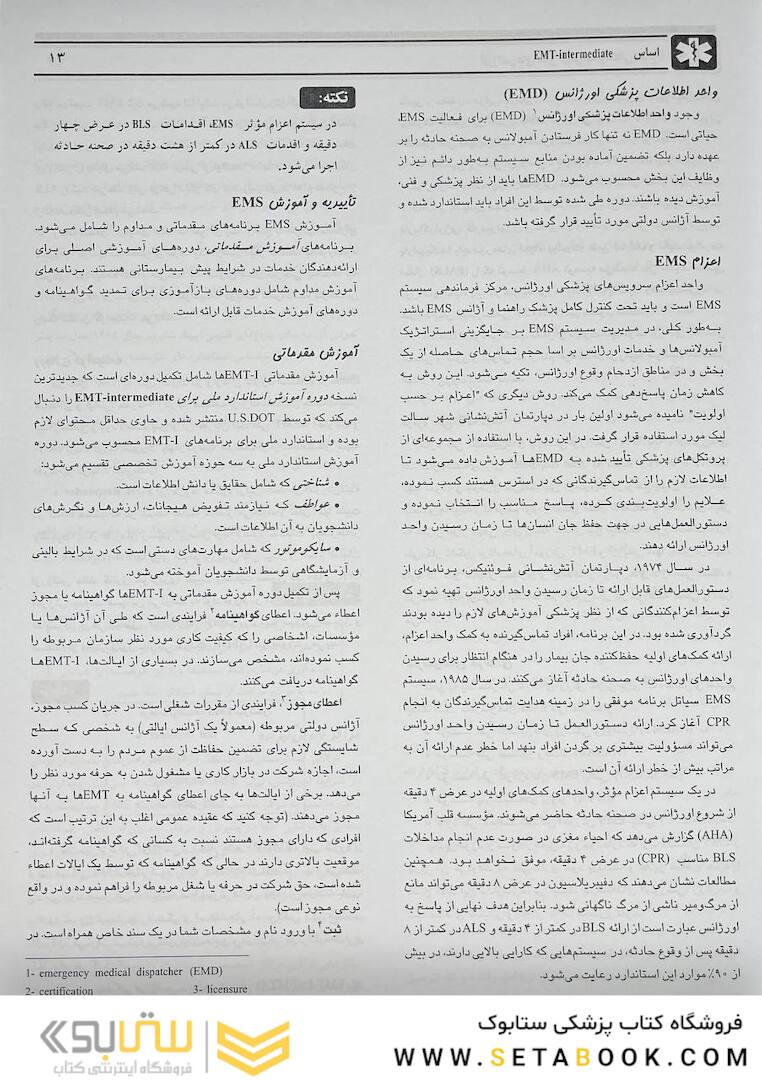 اساس EMT-intermediate
۱۳
واحد اطلاعات پزشکی اورژانس (EMD)
وجود واحد اطلاعات پزشکی اورژانس۱ (EMD) برای فعالیت EMS،
حیاتی است. EMD نه تنها کار فرستادن آمبولانس به صحنه حادثه را بر
عهده دارد بلکه تضمین آماده بودن منابع سیستم به‌طور دائم نیز از
وظایف این بخش محسوب می‌شود. EMDها باید از نظر پزشکی و فنی،
آموزش دیده باشند. دوره طی شده توسط این افراد باید استاندارد شده و
توسط آژانس دولتی مورد تأیید قرار گرفته باشد.
اعزام EMS
واحد اعزام سرویس‌های پزشکی اورژانس، مرکز فرماندهی سیستم
EMS است و باید تحت کنترل کامل پزشک راهنما و آژانس EMS باشد.
به‌طور کلی، در مدیریت سیستم EMS بر جایگزینی استراتژیک
آمبولانس‌ها و خدمات اورژانس بر اسا حجم تماس‌های حاصله از یک
بخش و در مناطق ازدحام وقوع اورژانس، تکیه می‌شود. این روش به
کاهش زمان پاسخ‌دهی کمک می‌کند. روش دیگری که "اعزام بر حسب
اولویت" نامیده می‌شود اولین بار در دپارتمان آتش‌نشانی شهر سالت
لیک مورد استفاده قرار گرفت. در این روش، با استفاده از مجموعه‌ای از
پروتکل‌های پزشکی تأیید شده به EMDها آموزش داده می‌شود تا
اطلاعات لازم را از تماس‌گیرندگانی که در استرس هستند کسب نموده،
علایم را اولویت‌بندی کرده، پاسخ مناسب را انتخاب نموده و
دستورالعمل‌هایی در جهت حفظ جان انسان‌ها تا زمان رسیدن واحد
اورژانس ارائه دهند.
در سال ۱۹۷۴، دپارتمان آتش‌نشانی فونیکس، برنامه‌ای از
دستورالعمل‌های قابل ارائه تا زمان رسیدن واحد اورژانس تهیه نمود که
توسط اعزام‌کنندگانی که از نظر پزشکی آموزش‌های لازم را دیده بودند
گردآوری شده بود. در این برنامه، افراد تماس‌گیرنده به کمک واحد اعزام،
ارائه کمک‌های اولیه حفظ‌کننده جان بیمار را در هنگام انتظار برای رسیدن
واحدهای اورژانس به صحنه حادثه آغاز می‌کنند. در سال ۱۹۸۵، سیستم
EMS سیاتل برنامه موفقی را در زمینه هدایت تماس‌گیرندگان به انجام
CPR آغاز کرد. ارائه دستورالعمل تا زمان رسیدن واحد اورژانس
می‌تواند مسؤولیت بیشتری بر گردن افراد بنهد اما خطر عدم ارائه آن به
مراتب بیش از خطر ارائه آن است.
در یک سیستم اعزام مؤثر، واحدهای کمک‌های اولیه در عرض ۴ دقیقه
از شروع اورژانس در صحنه حادثه حاضر می‌شوند. مؤسسه قلب آمریکا
(AHA) گزارش می‌دهد که احیاء مغزی در صورت عدم انجام مداخلات
BLS مناسب (CPR) در عرض ۴ دقیقه، موفق نخواهد بود. همچنین
مطالعات نشان می‌دهند که دفیبریلاسیون در عرض ۸ دقیقه می‌تواند مانع
از مرگ‌ومیر ناشی از مرگ ناگهانی شود. بنابراین هدف نهایی از پاسخ به
اورژانس عبارت است از ارائه BLS در کمتر از ۴ دقیقه و ALS در کمتر از ۸
دقیقه پس از وقوع حادثه، در سیستم‌هایی که کارایی بالایی دارند، در بیش
از ۹۰٪ موارد این استاندارد رعایت می‌شود.
نکته:
در سیستم اعزام مؤثر EMS، اقدامات BLS در عرض چهار
دقیقه و اقدمات ALS در کمتر از هشت دقیقه در صحنه حادثه
اجرا می‌شود.
تأییدیه و آموزش EMS
آموزش EMS برنامه‌های مقدماتی و مداوم را شامل می‌شود.
برنامه‌های آموزش مقدماتی، دوره‌های آموزشی اصلی برای
ارائه‌دهندگان خدمات در شرایط پیش بیمارستانی هستند. برنامه‌های
آموزش مداوم شامل دوره‌های بازآموزی برای تمدید گواهینامه و
دوره‌های آموزش خدمات قابل ارائه است.
آموزش مقدماتی
آموزش مقدماتی EMT-Iها شامل تکمیل دوره‌ای است که جدیدترین
نسخه دوره آموزش استاندارد ملی برای EMT-intermediate را دنبال
می‌کند که توسط U.S.DOT منتشر شده و حاوی حداقل محتوای لازم
بوده و استاندارد ملی برای برنامه‌های EMT-I محسوب می‌شود. دوره
آموزش استاندارد ملی به سه حوزه آموزش تخصصی تقسیم می‌شود:
• شناختی که شامل حقایق یا دانش اطلاعات است.
• عواطف که نیازمند تفویض هیجانات، ارزش‌ها و نگرش‌های
دانشجویان به آن اطلاعات است.
• سایکوموتور که شامل مهارت‌های دستی است که در شرایط بالینی
و آزمایشگاهی توسط دانشجویان آموخته می‌شود.
پس از تکمیل دوره آموزش مقدماتی به EMT-Iها گواهینامه یا مجوز
اعطاء می‌شود. اعطای گواهینامه۲ فرایندی است که طی آن آژانس‌ها یا
مؤسسات، اشخاصی را که کیفیت کاری مورد نظر سازمان مربوطه را
کسب نموده‌اند، مشخص می‌سازند. در بسیاری از ایالت‌ها، EMT-Iها
گواهینامه دریافت می‌کنند.
اعطای مجوز۳، فرایندی از مقررات شغلی است. در جریان کسب مجوز،
آژانس دولتی مربوطه (معمولاً یک آژانس ایالتی) به شخصی که سطح
شایستگی لازم برای تضمین حفاظت از عموم مردم را به دست آورده
است، اجازه شرکت در بازار کاری یا مشغول شدن به حرفه مورد نظر را
می‌دهد. برخی از ایالت‌ها به جای اعطای گواهینامه به EMTها به آنها
مجوز می‌دهند. (توجه کنید که عقیده عمومی اغلب به این ترتیب است که
افرادی که دارای مجوز هستند نسبت به کسانی که گواهینامه گرفته‌اند،
موقعیت بالاتری دارند در حالی که گواهینامه که توسط یک ایالات اعطاء
شده است، حق شرکت در حرفه یا شغل مربوطه را فراهم نموده و در واقع
نوعی مجوز است).
ثبت۴ با ورود نام و مشخصات شما در یک سند خاص همراه است. در
1- emergency medical dispatcher (EMD)
2- certification 3- licensure
فروشگاه کتاب پزشکی ستابوک
WWW.SETABOOK.COM
ستابوک
فروشگاه اینترنتی کتاب